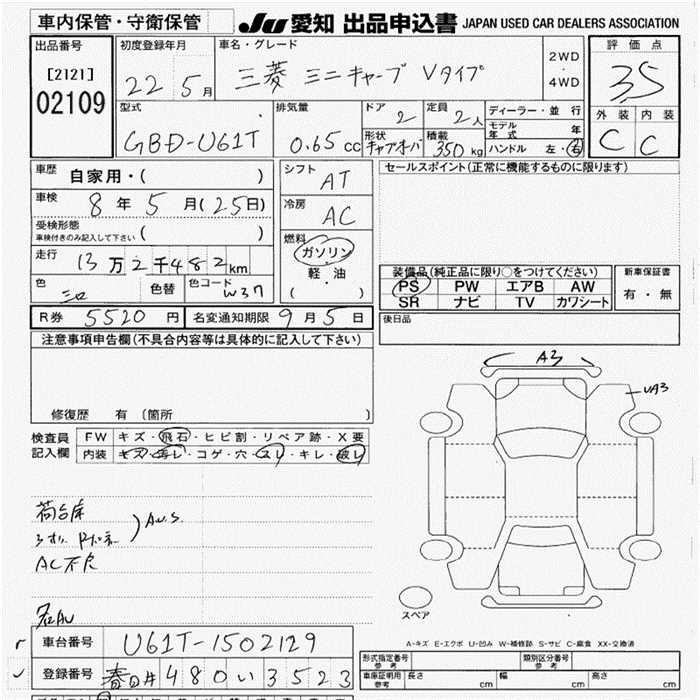 車内保管・守衛保管
JU 愛知 出品申込書 JAPAN USED CAR DEALERS ASSOCIATION
出品番号 [2121] 02109
初度登録年月 22 5月
車名・グレード 三菱 ミニキャブ Vタイプ
2WD・4WD
評価点 3.5
型式 GBD-U61T
排気量 0.65cc
ドア 2
定員 2人
形状 キャブオーバ
積載 350kg
ディーラー・並行
モデル年式 年
ハンドル 左・右
外装 C 内装 C
車歴 自家用・( )
車検 8年 5月(25日)
受検形態 車検付きのみ記入して下さい ( )
走行 13万2千482km
色 シロ 色替 色コード W37
シフト AT
冷房 AC
燃料 ガソリン・軽油 ( )
セールスポイント(正常に機能するものに限ります)
装備品(純正品に限り○をつけてください)
PS PW エアB AW
SR ナビ TV カワシート
新車保証書 有・無
R券 5520円 名変通知期限 9月5日
後日品
注意事項申告欄(不具合内容等は具体的に記入して下さい)
修復歴 有 (箇所 )
検査員記入欄
FW キズ・飛石・ヒビ割・リペア跡・X要
内装 キズ・汚レ・コゲ・穴・スレ・キレ・破レ
荷台床
AC不良
A3
スペア
A-キズ E-エクボ U-凹み W-補修跡 S-サビ C-腐食 XX-交換済
車台番号 U61T-1502129
登録番号 春日井 480 い 3523
形式指定番号 参考
類別区分番号 参考
車庫証明用 参考 長さ cm 幅 cm 高さ cm